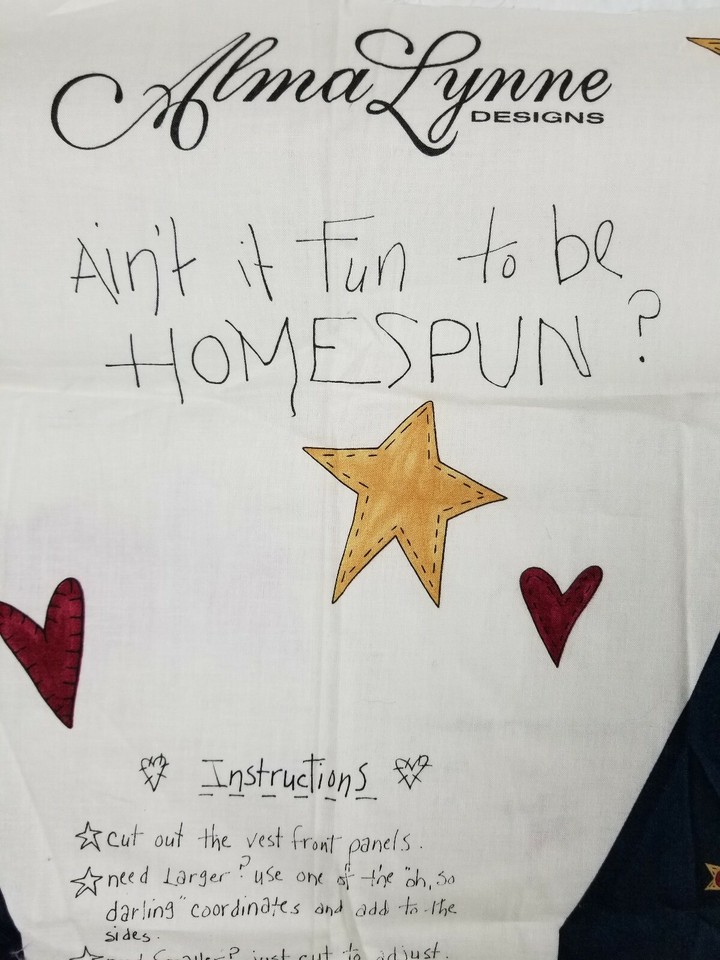 Alma Lynne
DESIGNS
Ain't it Fun to be
HOMESPUN?
Instructions
cut out the vest front panels.
need Larger? use one of the "oh, so
darling" coordinates and add to the
sides.
just cut to adjust.